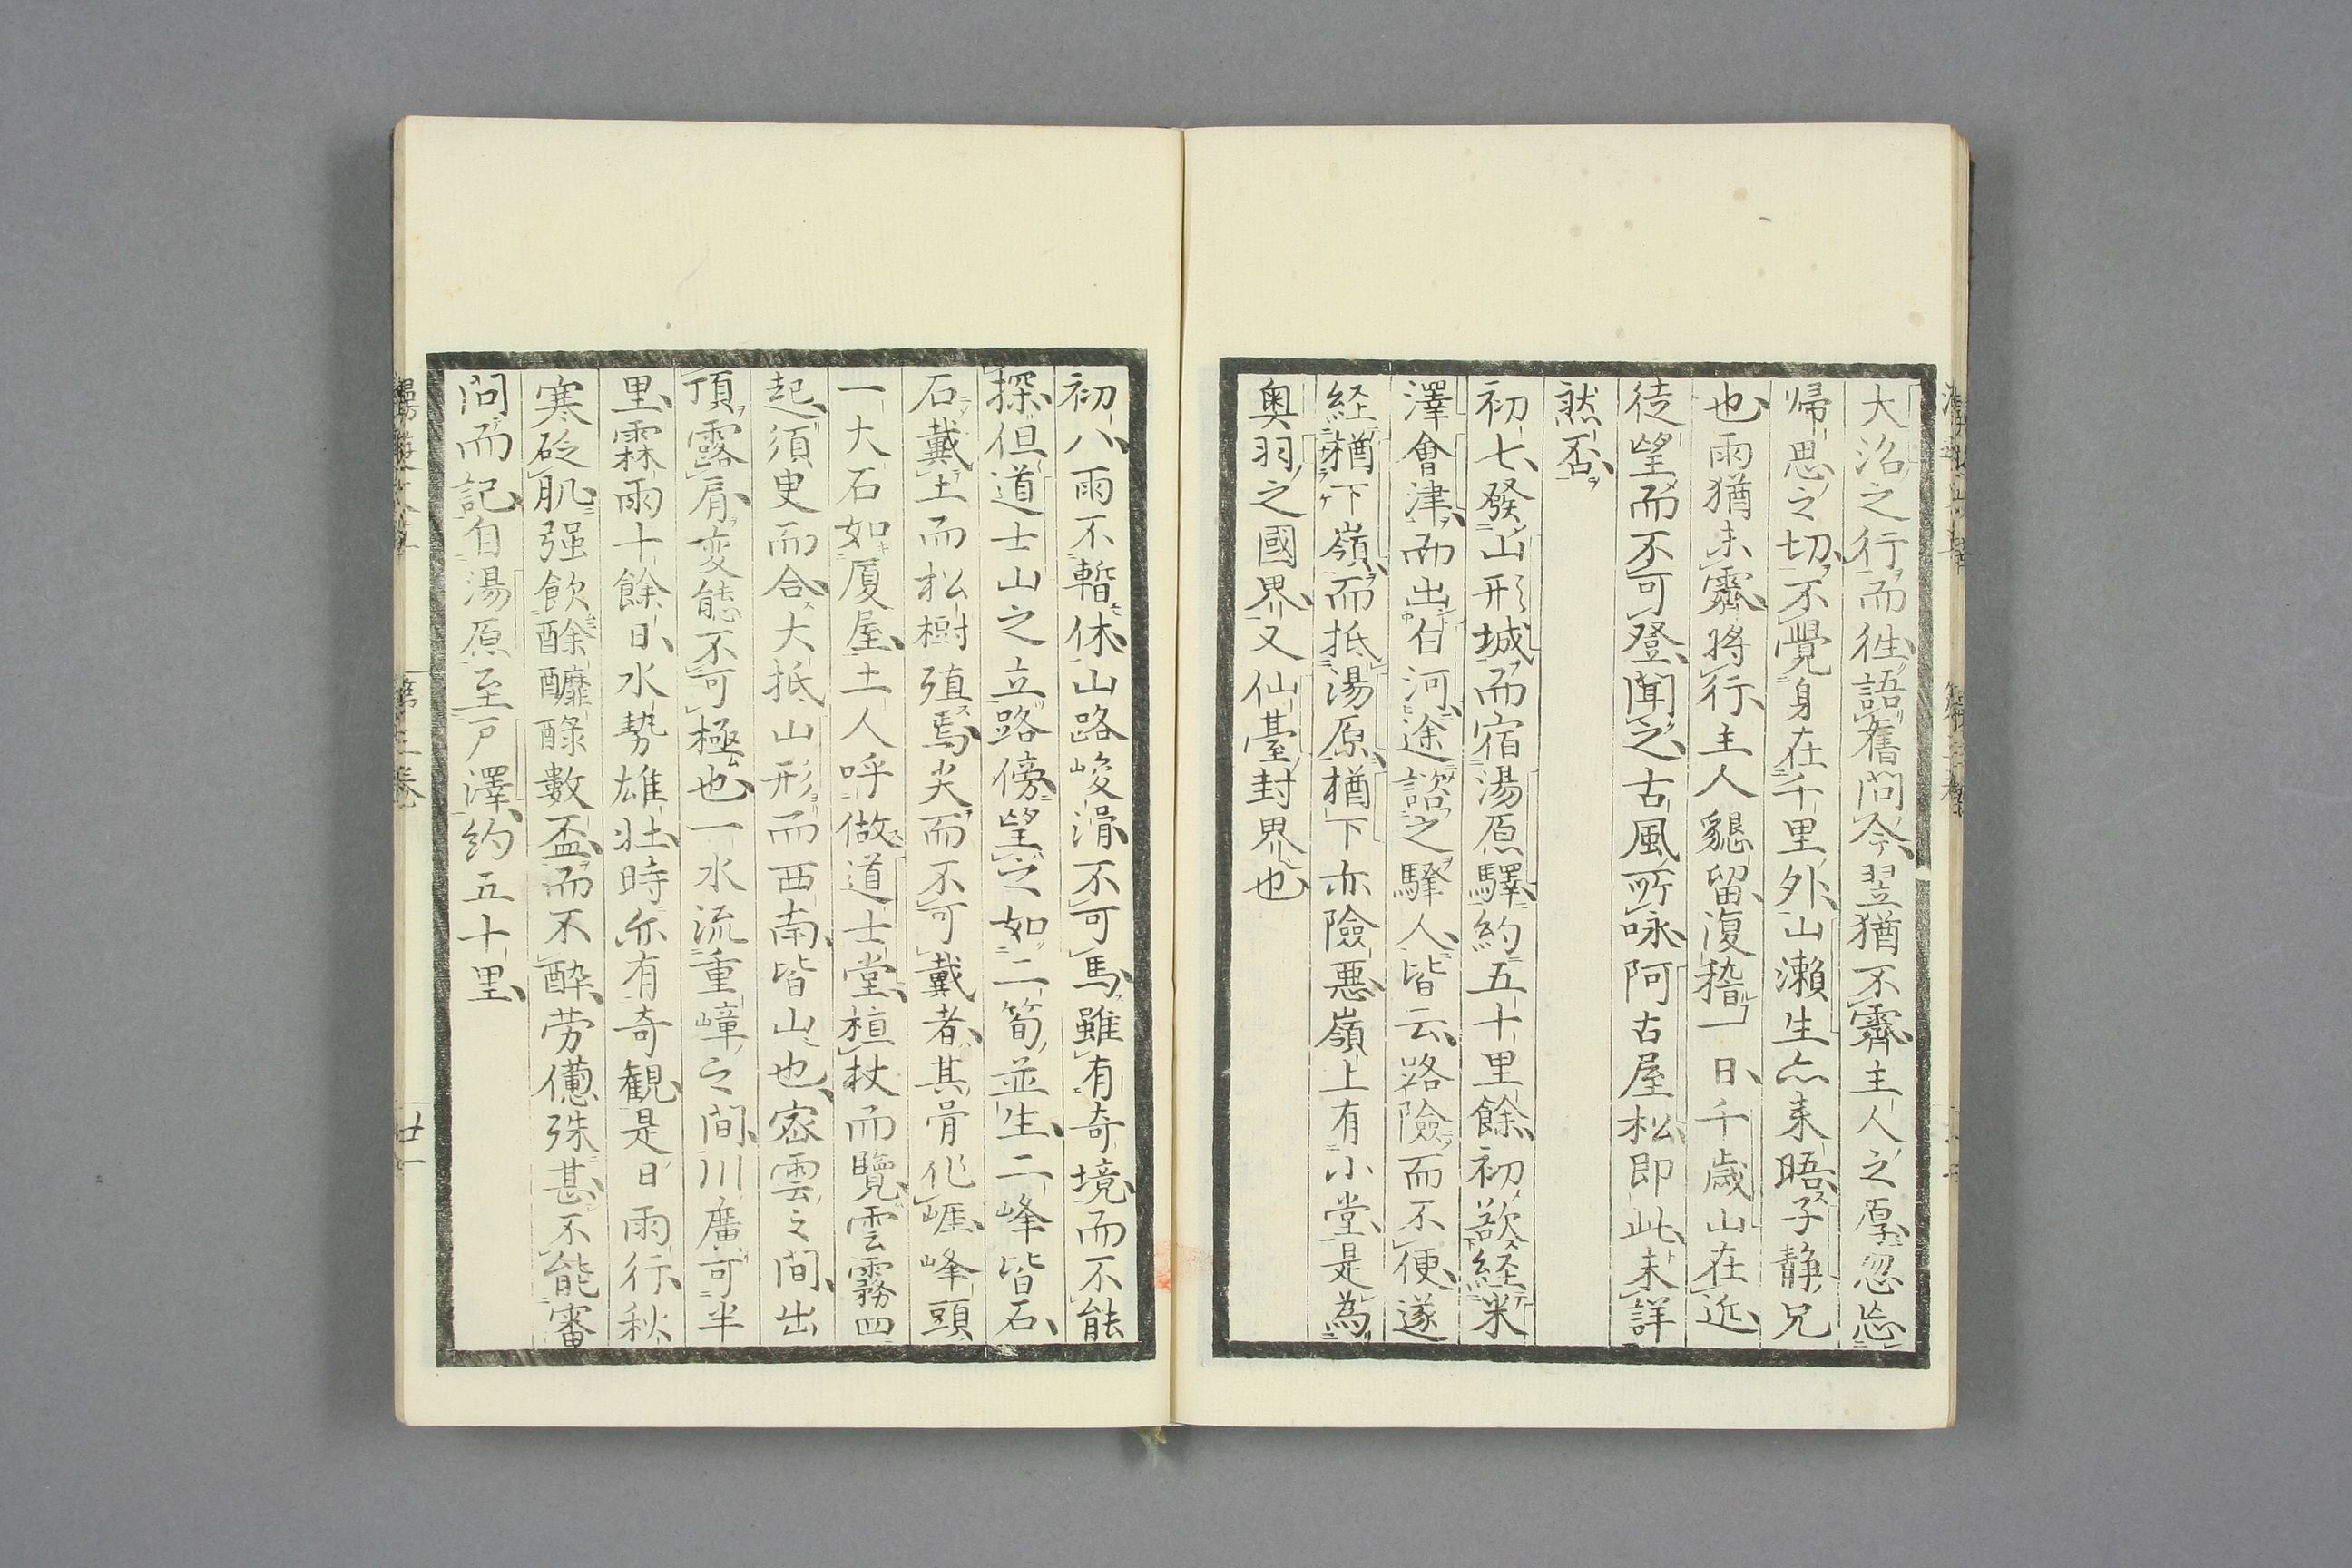 大沼之行而徃語舊問今翌猶不霽主人之厚忽忘
帰思之切不覺身在千里外山瀬生亦来晤子静兄
也雨猶未霽将行主人懇留復稽一日千歳山在近
徒望而不可登聞之古風所咏阿古屋松即此未詳
然否
初七發山形城而宿湯原驛約五十里餘初欲経米
澤會津而出白河途諮之驛人皆云路險而不便遂
経楢下嶺而抵湯原楢下亦險悪嶺上有小堂是為
奥羽之國界又仙臺封界也
初八雨不暫休山路峻滑不可馬雖有奇境而不能
探但道士山之立路傍望之如二筍並生二峰皆石
石戴土而松樹殖焉尖而不可戴者其骨化崕峰頭
一大石如厦屋土人呼做道士堂植杖而覽雲霧四
起須臾而合大抵山形而西南皆山也密雲之間出
頂露肩変態不可極也一水流重嶂之間川廣可半
里霖雨十餘日水勢雄壮時亦有奇観是日雨行秋
寒砭肌强飲酴醿醁數盃而不酔労憊殊甚不能審
問而記自湯原至戸澤約五十里
第三巻
廿一